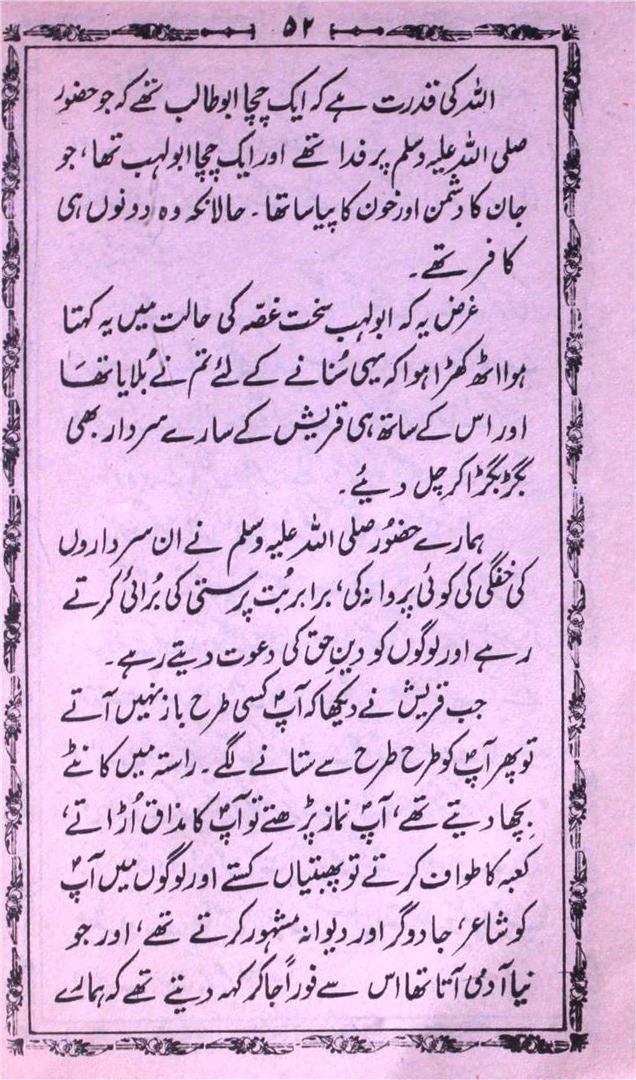 ۵۲
اللہ کی قدرت ہے کہ ایک چچا ابوطالب تھے کہ جو حضور
صلی اللہ علیہ وسلم پر فدا تھے اور ایک چچا ابولہب تھا، جو
جان کا دشمن اور خون کا پیاسا تھا۔ حالانکہ وہ دونوں ہی
کافر تھے۔
غرض یہ کہ ابولہب سخت غصّہ کی حالت میں یہ کہتا
ہوا اٹھ کھڑا ہوا کہ یہی سُنانے کے لئے تم نے بُلایا تھا
اور اس کے ساتھ ہی قریش کے سارے سردار بھی
بگڑ بگڑا کر چل دیئے۔
ہمارے حضُور صلی اللہ علیہ وسلم نے ان سرداروں
کی خفگی کی کوئی پروا نہ کی، برابر بُت پرستی کی بُرائی کرتے
رہے اور لوگوں کو دینِ حق کی دعوت دیتے رہے۔
جب قریش نے دیکھا کہ آپؐ کسی طرح باز نہیں آتے
تو پھر آپؐ کو طرح طرح سے ستانے لگے۔ راستہ میں کانٹے
بِچھا دیتے تھے، آپؐ نماز پڑھتے تو آپؐ کا مذاق اُڑاتے،
کعبہ کا طواف کرتے تو پھبتیاں کستے اور لوگوں میں آپؐ
کو شاعر، جادوگر اور دیوانہ مشہور کرتے تھے، اور جو
نیا آدمی آتا تھا اس سے فوراً جا کر کہہ دیتے تھے کہ ہمارے